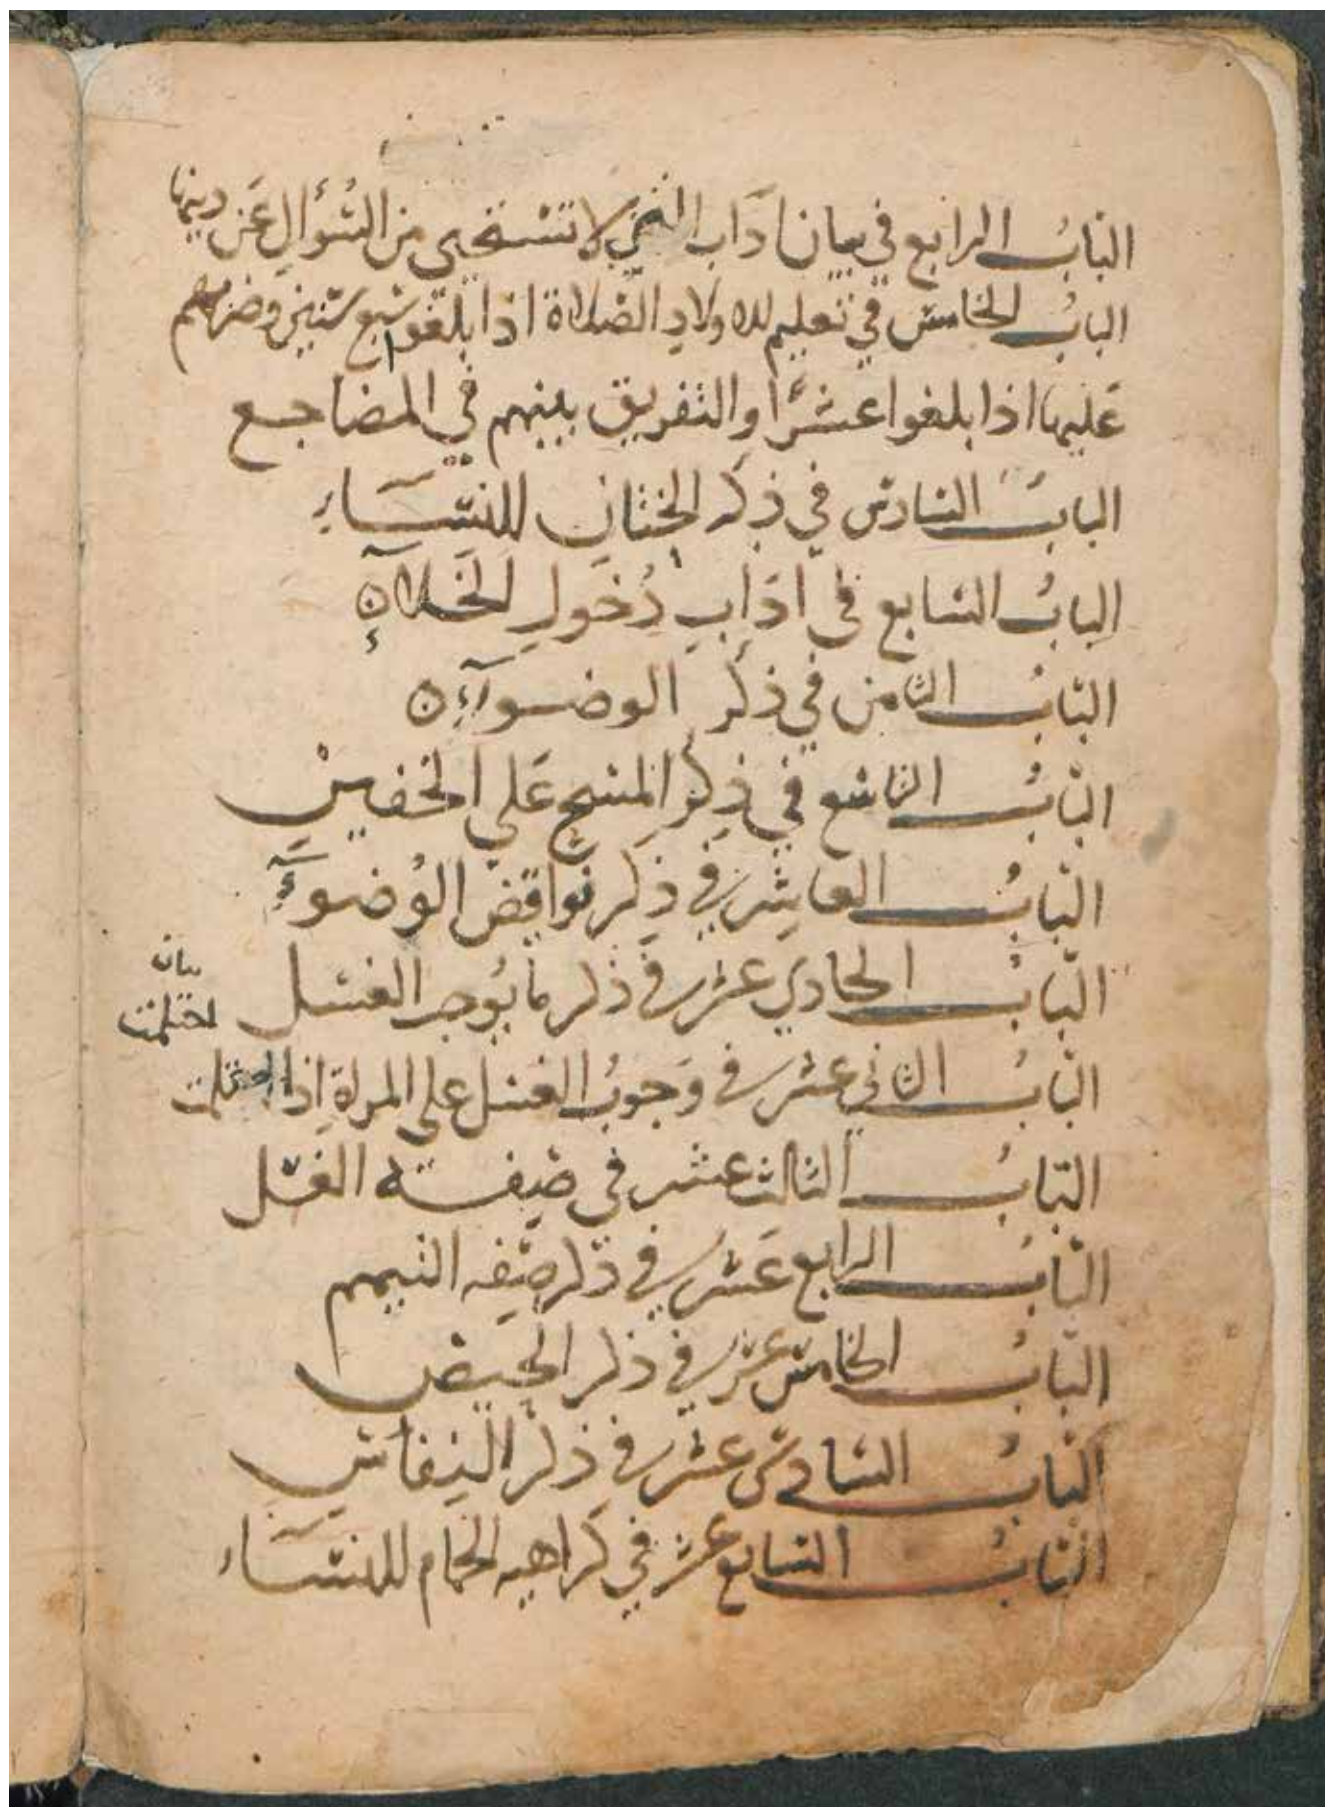 البَابُ الرابع في بيان ادَاب لا تستحيي من السُؤالِ عَن دينها
البابُ الخامس في تعليم الاولادِ الصَّلاة اذا بلغوا سَبع سنين وضربهم
عَليها اذا بلغوا عشرًا والتفريق بينهم في المضاجع
البابُ السادس في ذِكر الختان للنسَاءِ
البابُ السابع في ادَابِ دُخولِ الخَلاءِ
البَابُ الثامن في ذكر الوضوءِ
البَابُ التاسع في ذِكر المسحِ عَلى الخفين
البَابُ العاشِر في ذِكر نَواقض الوُضوءِ
البَابُ الحادي عشر في ذكر مَا يُوجب الغسل
بيان
احتلمت
البَابُ الثاني عشر في وَجوبُ الغسل على المراة اِذا احتلمت
البَابُ الثالث عشر في صِفة الغسل
البَابُ الرابع عَشر في ذكر صِفه التيمم
البَابُ الخامس عشر في ذكر الحَيض
البَابُ السادس عشر في ذكر النِفَاسِ
البَابُ السابع عشر في كراهيه الحمام للنسَاء